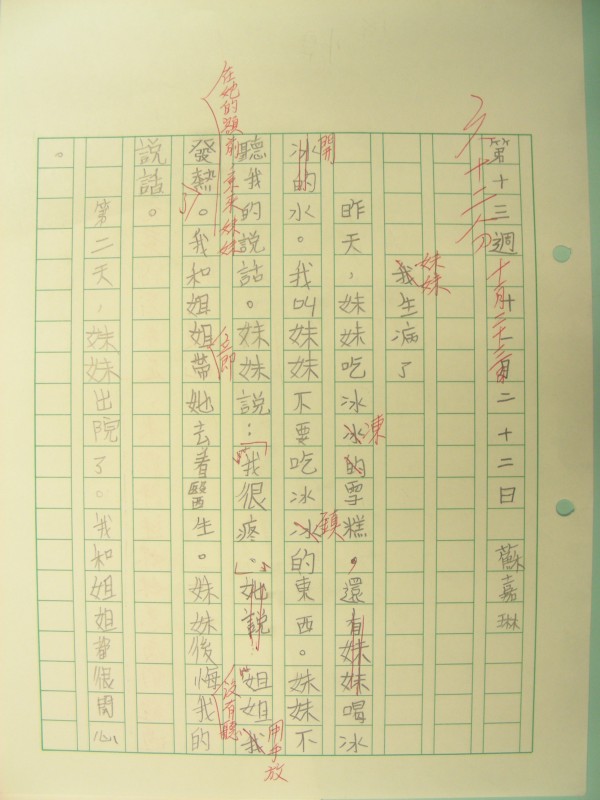 第十三週 十月二十二日 蘇嘉琳
六十二分
十一月二十三
我生病了
妹妹
昨天,妹妹吃冰冰的雪糕,還有妹妹喝冰
凍
冰的水。我叫妹妹不要吃冰冰的東西。妹妹不
開
鎮
聽我的說話。妹妹說:我很疼。她說:姐姐我
用手放
在她的額
原來妹妹
發熱。我和姐姐帶她去看醫生。妹妹後悔我的
了
立即
沒有聽
說話。
第二天,妹妹出院了。我和姐姐都很開心
。